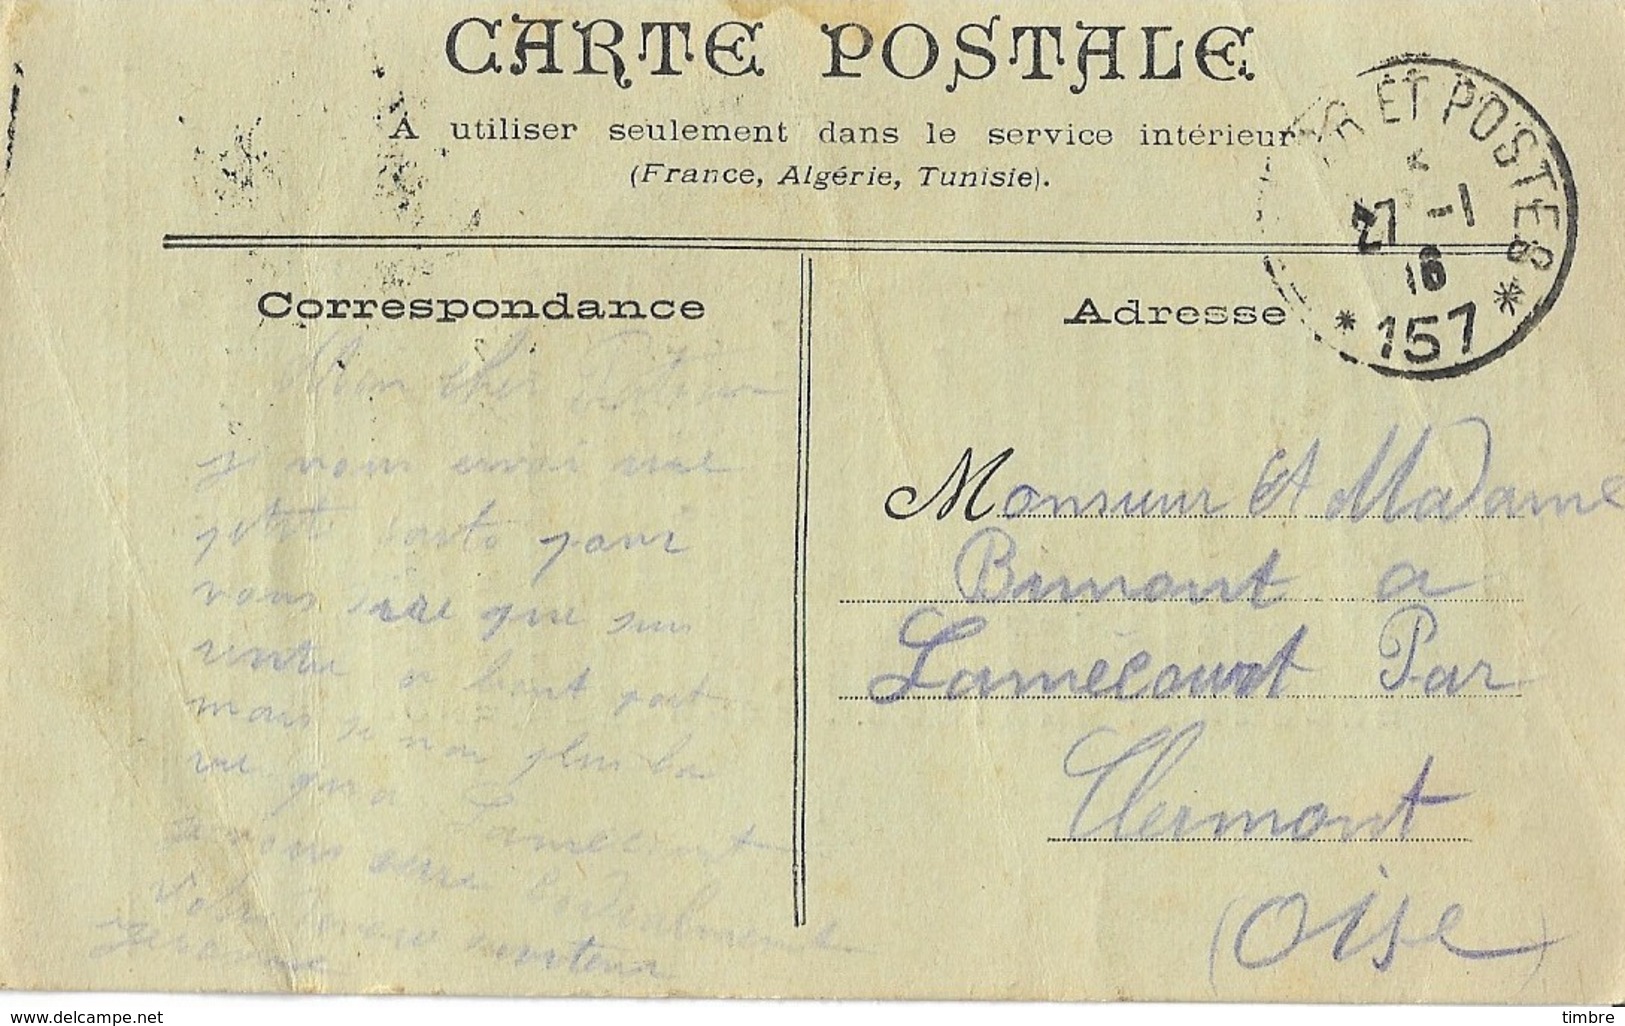 CARTE POSTALE
À utiliser seulement dans le service intérieur
(France, Algérie, Tunisie).
ET POSTES
27 -1
16
* 157 *
Correspondance
Mon cher
je vous envoi une
petite carte pour
vous dire que suis
rentre a bont port
mais je
vue qu a Lamecourt
a vous serre cordialment
Votre
Adresse
Monsieur Et Madame
Bimont a
Lamécourt Par
Clermont
(Oise)
www.delcampe.net
timbre